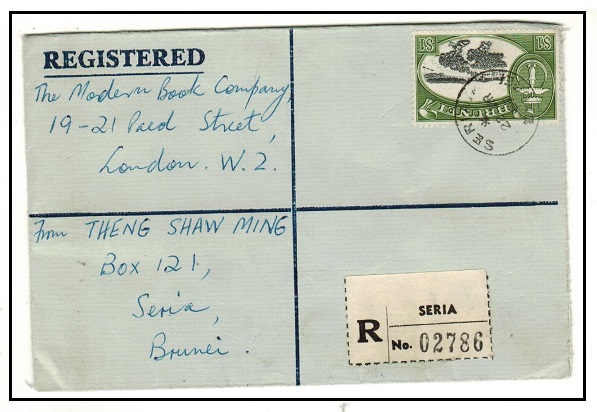 REGISTERED
The Modern Book Company,
19-21 Paed Street,
London. W.2.
From THENG SHAW MING
Box 121,
Seria,
Brunei.
$1 $1
BRUNEI
SERIA
R No. 02786